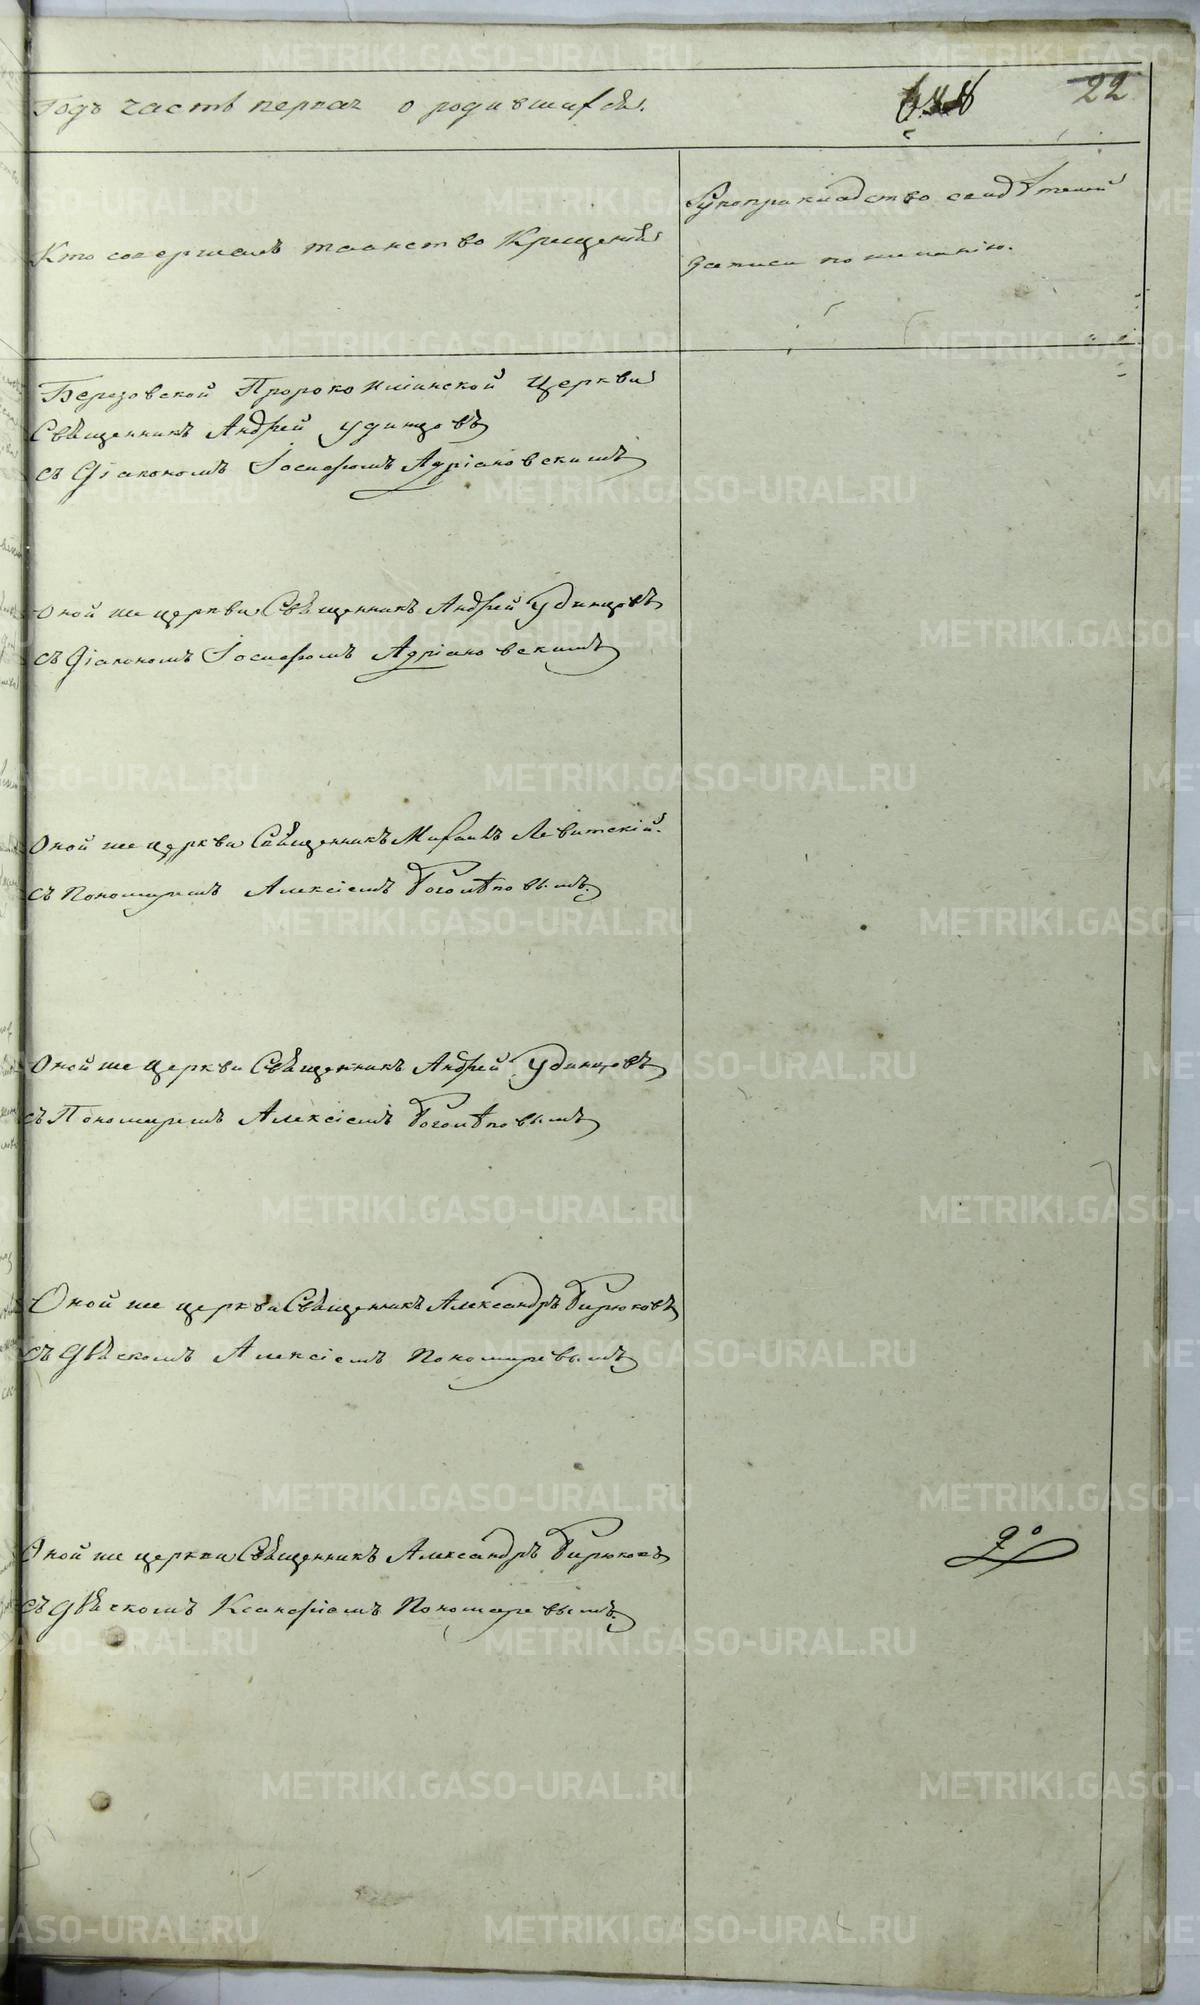 Годъ часть первая о родившихся. 22
Кто совершалъ таинство Крещенія
Рукоприкладство свидѣтелей
записи по желанію.
Березовской Пророкоилiинской Церкви
Священникъ Андрей Удинцовъ
съ Діакономъ Іосифомъ Адріановскимъ
Оной же церкви Священникъ Андрей Удинцовъ
съ Діакономъ Іосифомъ Адріановскимъ
Оной же церкви Священникъ Михаилъ Левитскій.
съ Пономаремъ Алексіемъ Боголѣповымъ.
Оной же Церкви Священникъ Андрей Удинцовъ
съ Пономаремъ Алексіемъ Боголѣповымъ
Оной же церкви Священникъ Александръ Бирюковъ
съ Дьячкомъ Алексіемъ Пономаревымъ
Оной же церкви Священникъ Александръ Бирюковъ
съ Дьячкомъ Ксанфіемъ Пономаревымъ.
METRIKI.GASO-URAL.RU